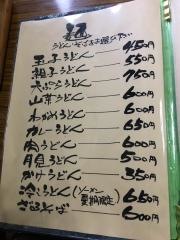 麺
うどん・そばお選び下さい
玉子うどん 450円
親子うどん 550円
天ぷらうどん 750円
山菜うどん 600円
わかめうどん 600円
カレーうどん 650円
肉うどん 600円
月見うどん 500円
かけうどん 350円
冷しうどん(ソーメン 夏期限定) 650円
ざるそば 600円